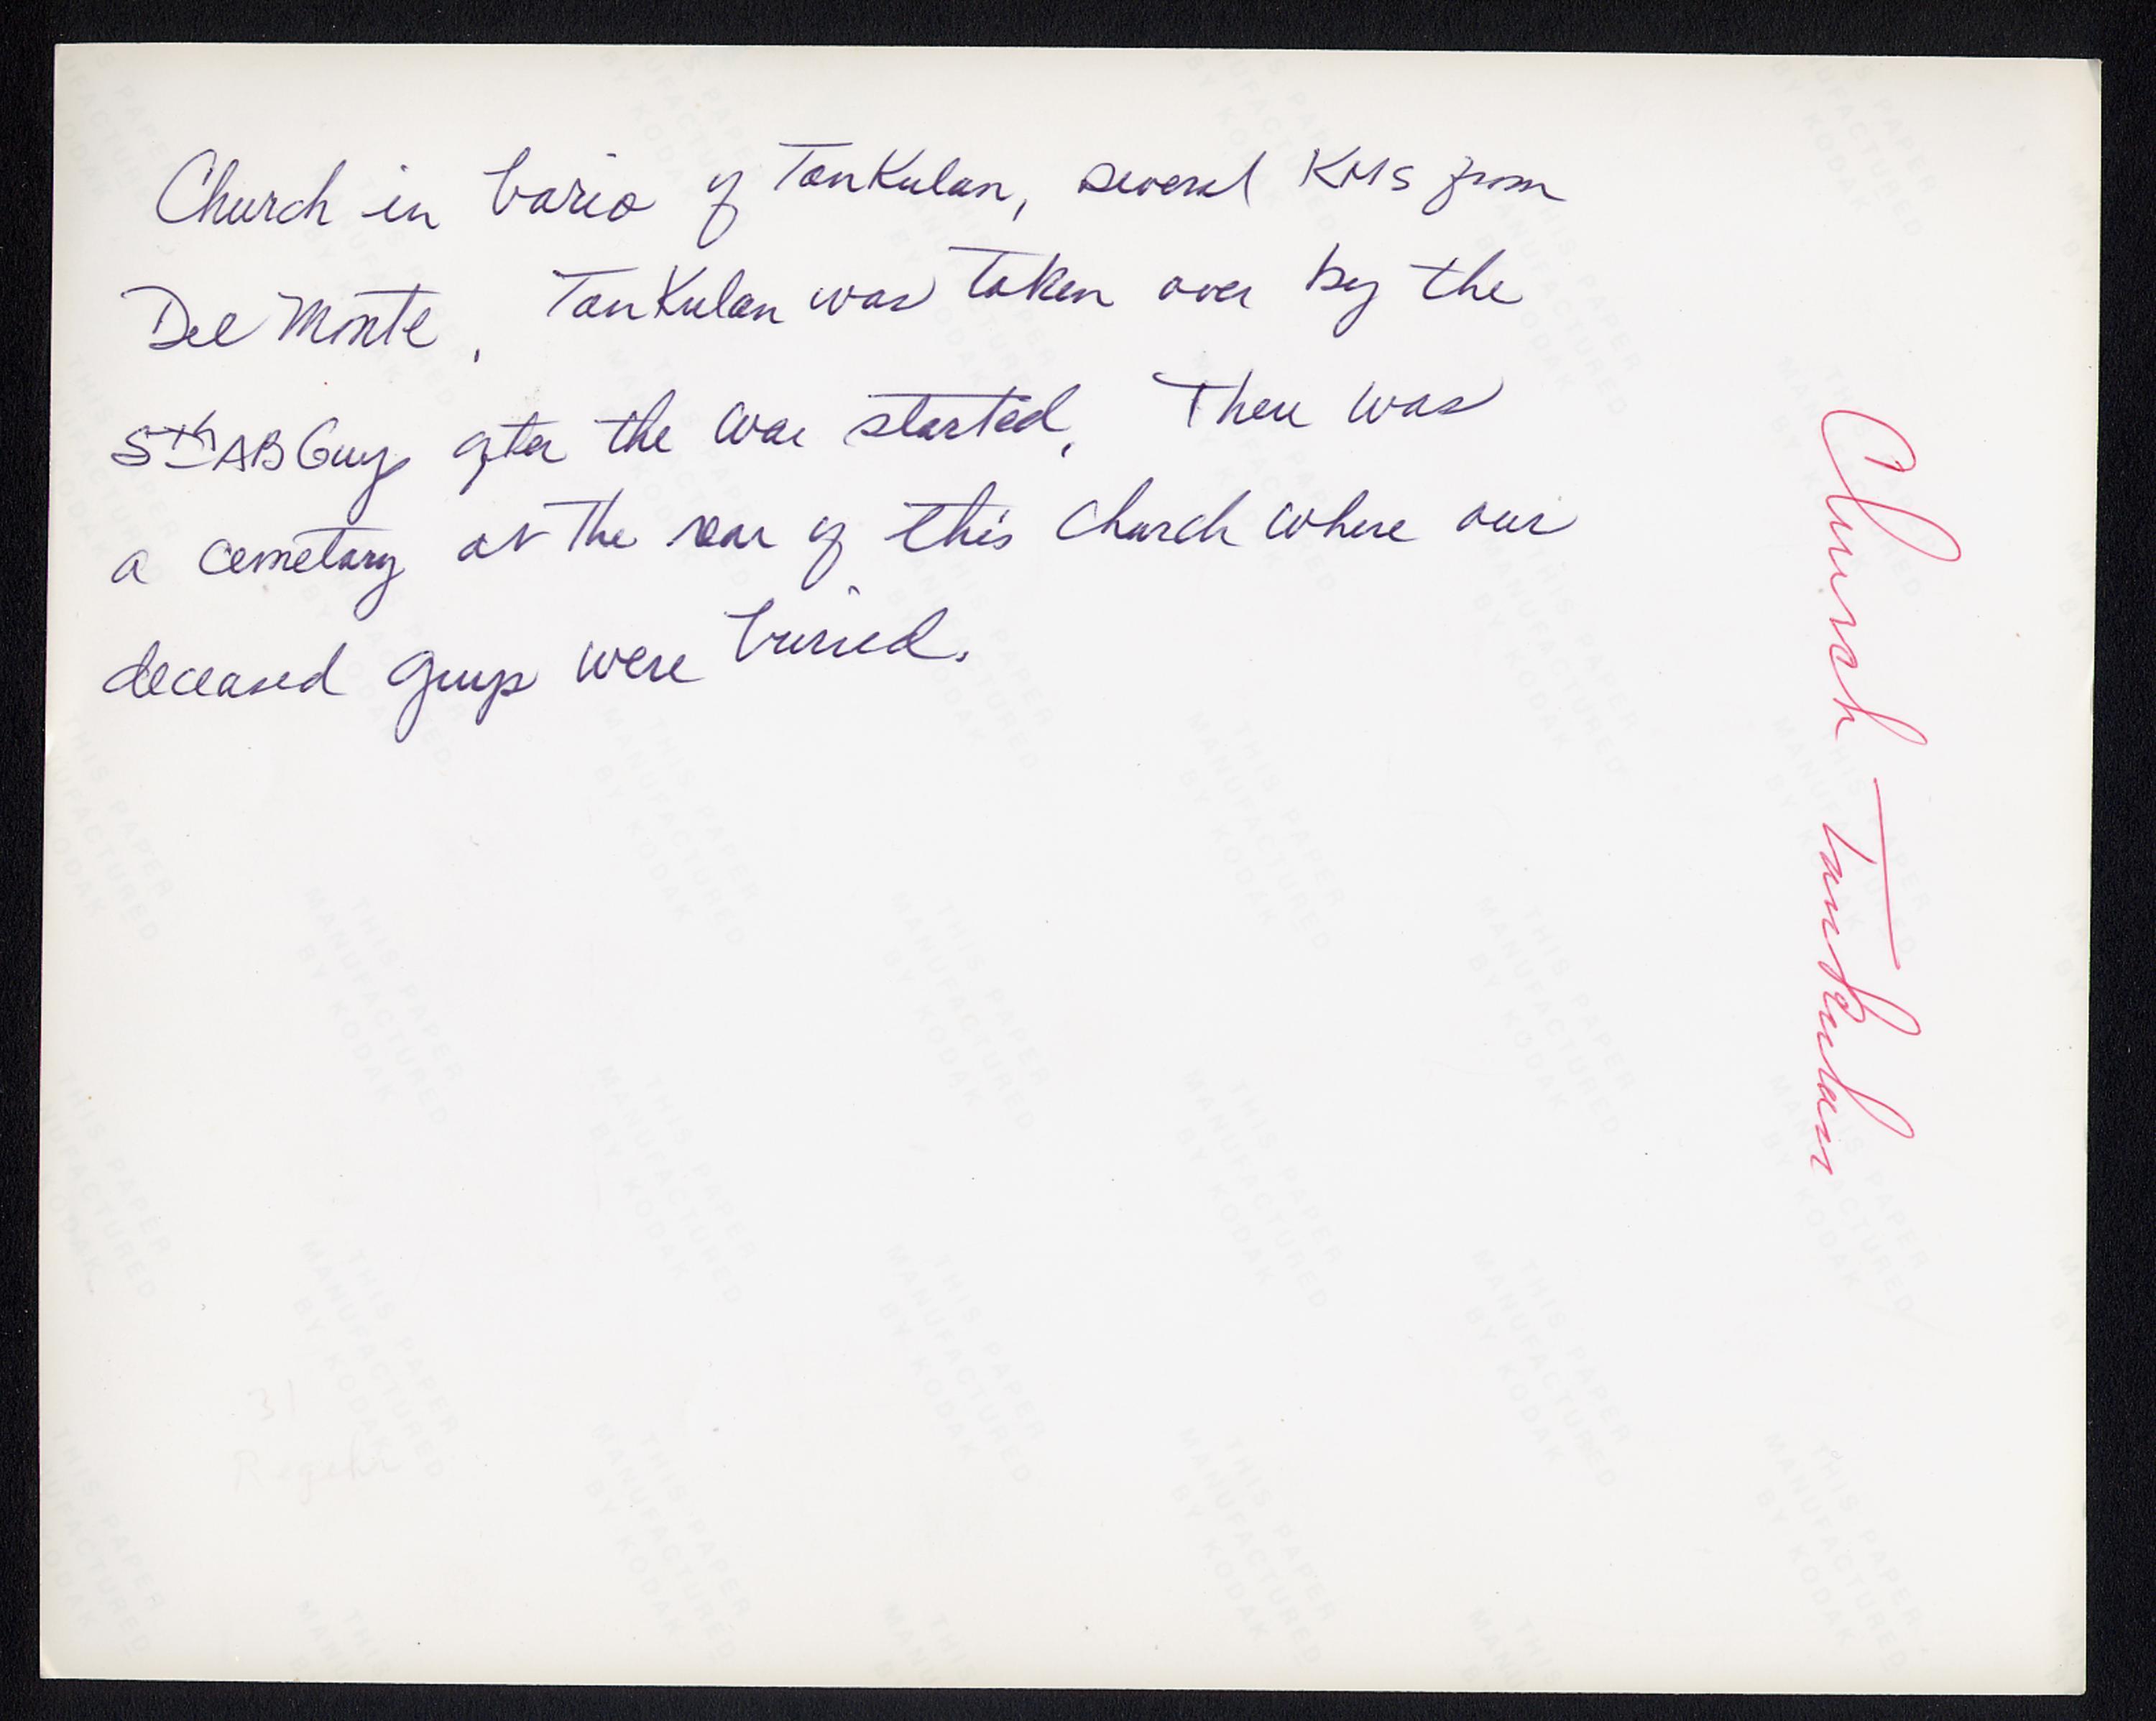 Church in bario of TanKulan, several KMs from
Del Monte. TanKulan was taken over by the
5th AB Guys after the war started. There was
a cemetary at the rear of this church where our
deceased guys were buried.
Church Tankulan
THIS PAPER
MANUFACTURED
BY KODAK